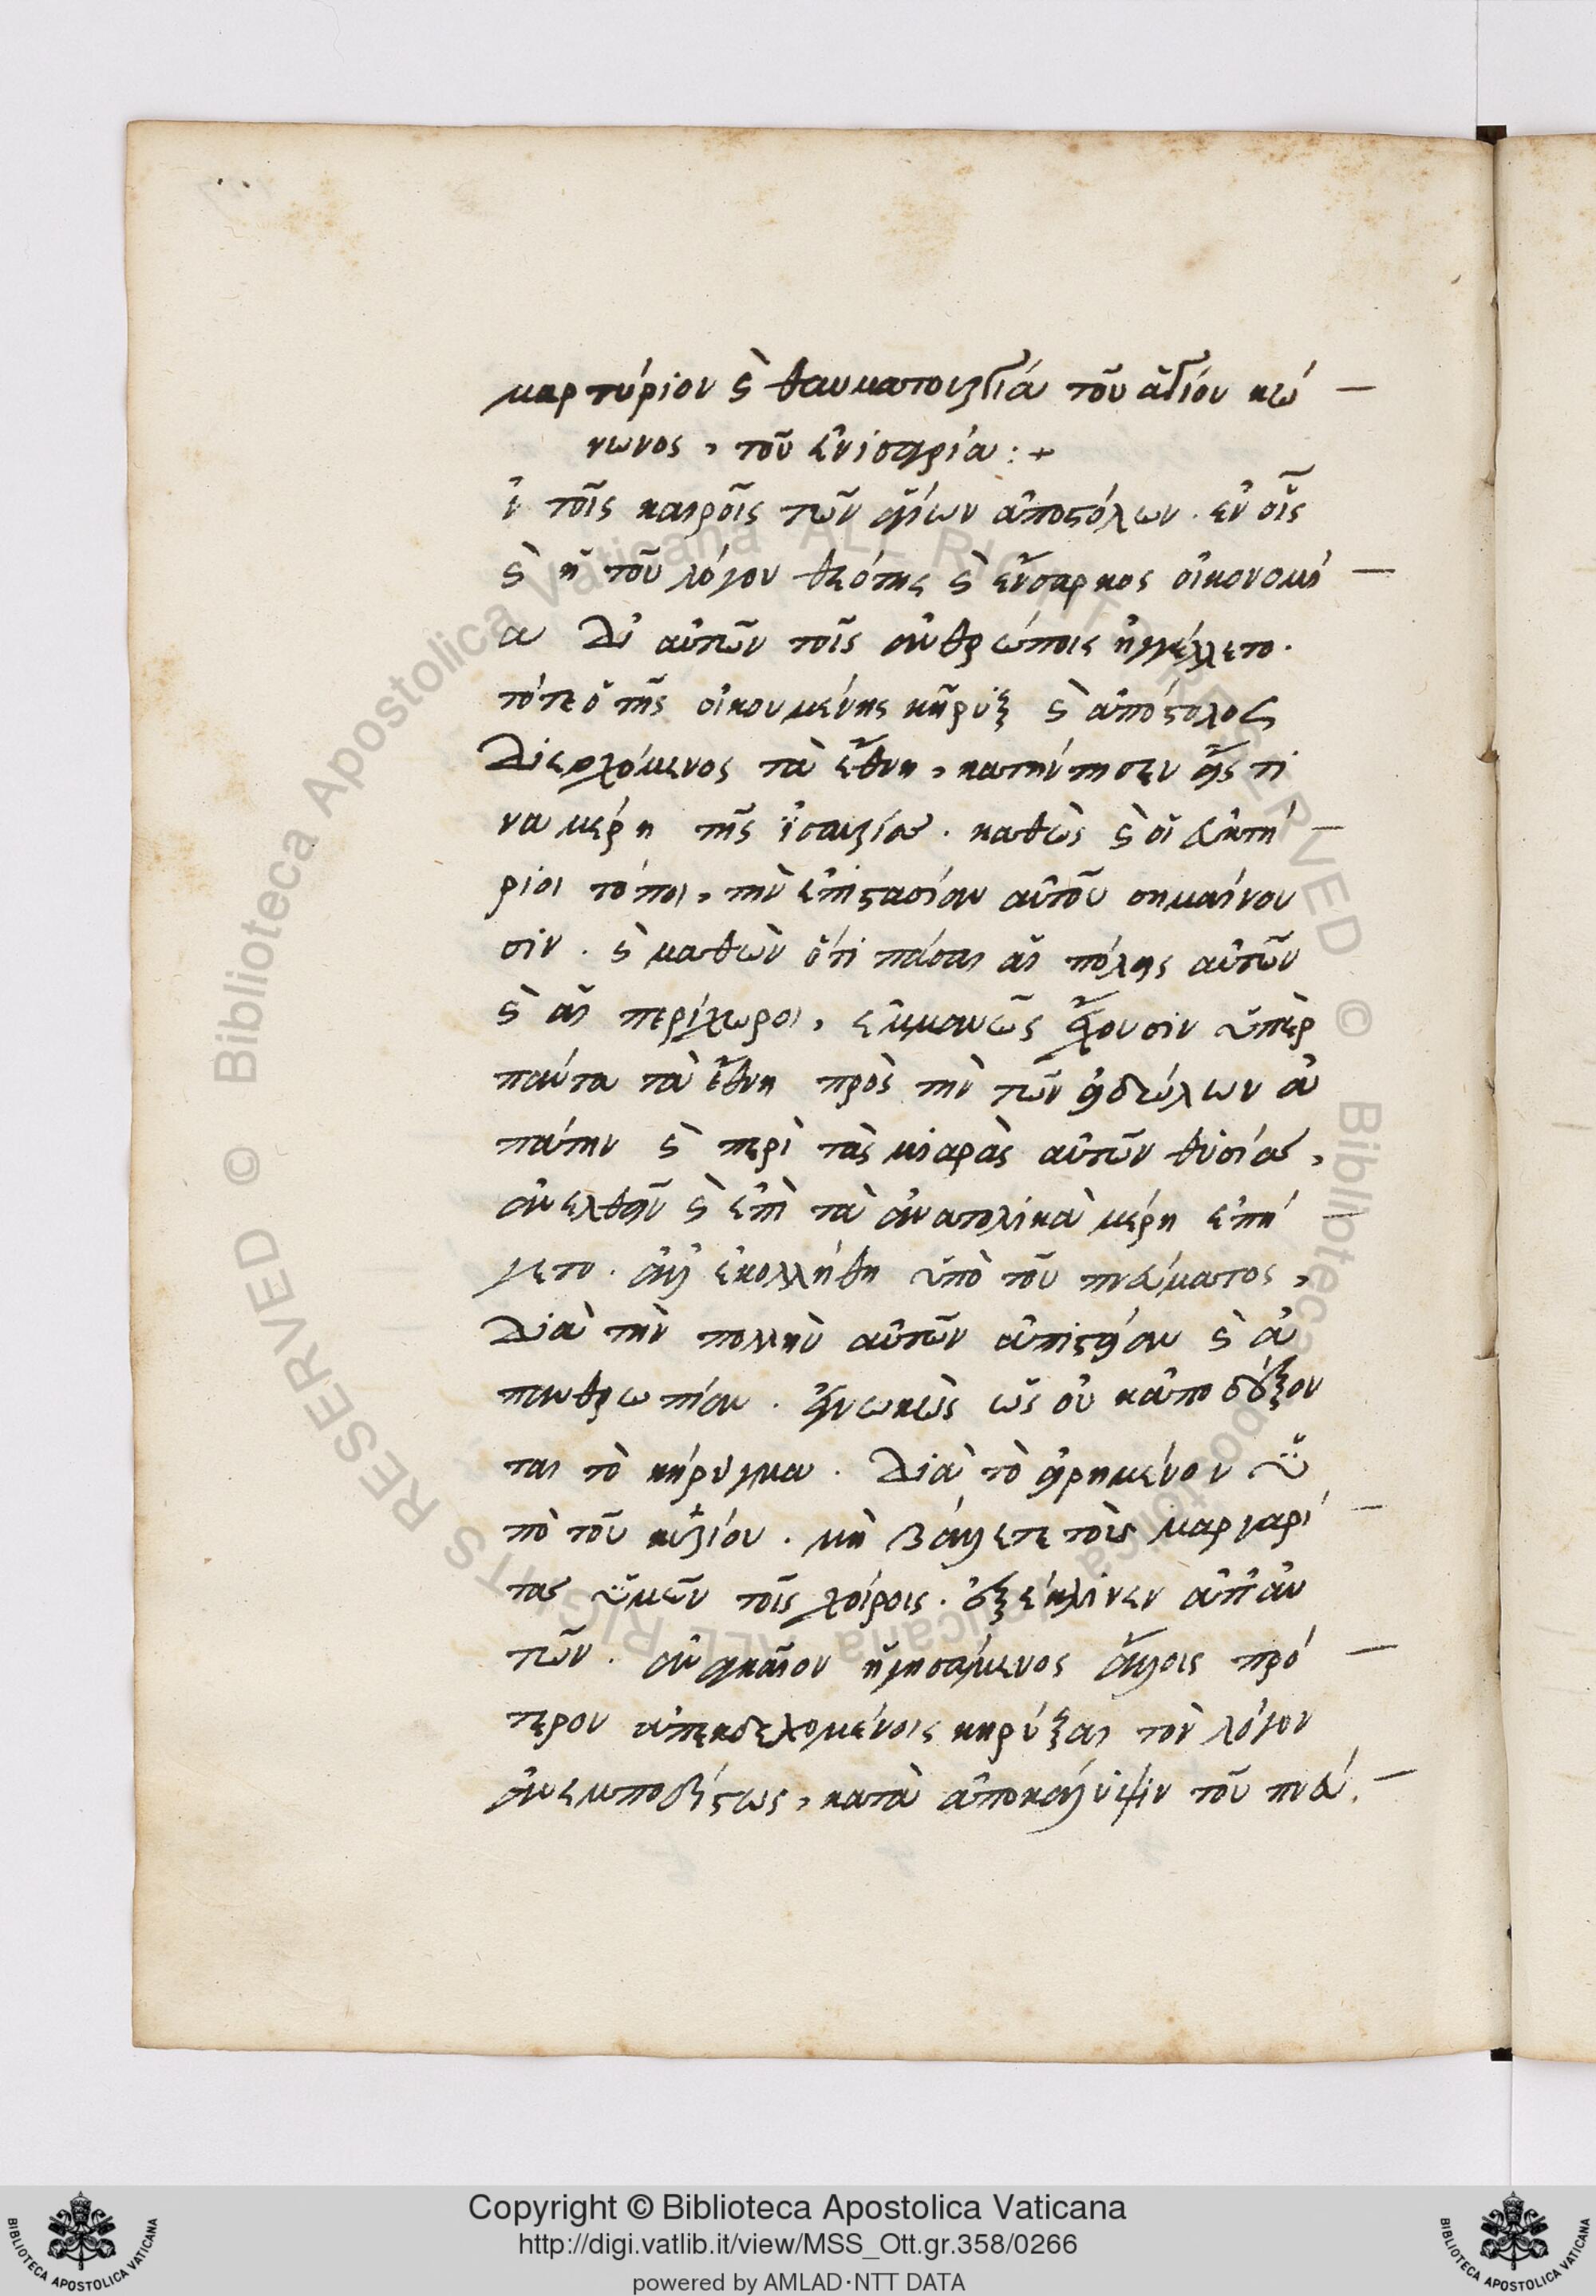 μαρτύριον ϗ θαυματουργία τοῦ ἁγίου κώ
νωνος, τοῦ ἐν ἰσαυρία :+
ν τοῖς καιροῖς τῶν ἁγίων ἀποστόλων. ἐν οἷς
ϗ ἡ τοῦ λόγου θεότης ϗ ἔνσαρκος οἰκονομί
α δι' αὐτῶν τοῖς ἀνθρώποις ἠγγέλλετο.
τότε ὁ τῆς οἰκουμένης κῆρυξ ϗ ἀπόστολος
διερχόμενος τὰ ἔθνη, κατήντησεν εἴς τι
να μέρη τῆς ἰσαυρίας. καθὼς ϗ οἱ εὐκτή
ριοι τόποι, τὴν ἐπιστασίαν αὐτοῦ σημαίνου
σιν. ϗ μαθὼν ὅτι πᾶσαι αἱ πόλεις αὐτῶν
ϗ αἱ περίχωροι, ἐμμανῶς ἔχουσιν ὑπὲρ
πάντα τὰ ἔθνη πρὸς τὴν τῶν εἰδώλων ἀ
πάτην ϗ περὶ τὰς μιαρὰς αὐτῶν θυσίας,
ἀνελθεῖν ϗ ἐπὶ τὰ ἀνατολικὰ μέρη ἐπή
γετο. ἀλλ' ἐκολλήθη ὑπὸ τοῦ πνεύματος,
διὰ τὴν πολλὴν αὐτῶν ἀπιστείαν ϗ ἀ
πανθρωπίαν. ἐγνωκὼς ὡς οὐκ ἀποδέξον
ται τὸ κήρυγμα. διὰ τὸ εἰρημένον ὑ
πὸ τοῦ κυρίου. μὴ βάλλετε τοὺς μαργαρί
τας ὑμῶν τοῖς χοίροις. ἐξέκλινεν ἀπ' αὐ
τῶν. ἀναγκαῖον ἡγησάμενος ἄλλοις πρό
τερον ἀπεκδεχομένοις κηρύξαι τὸν λόγον
ἀνεμποδίστως, κατὰ ἀποκάλυψιν τοῦ πνεύ
Copyright © Biblioteca Apostolica Vaticana
http://digi.vatlib.it/view/MSS_Ott.gr.358/0266
powered by AMLAD·NTT DATA
BIBLIOTECA APOSTOLICA VATICANA
BIBLIOTECA APOSTOLICA VATICANA
© Biblioteca Apostolica Vaticana ALL RIGHTS RESERVED
© Biblioteca Apostolica Vaticana ALL RIGHTS RESERVED